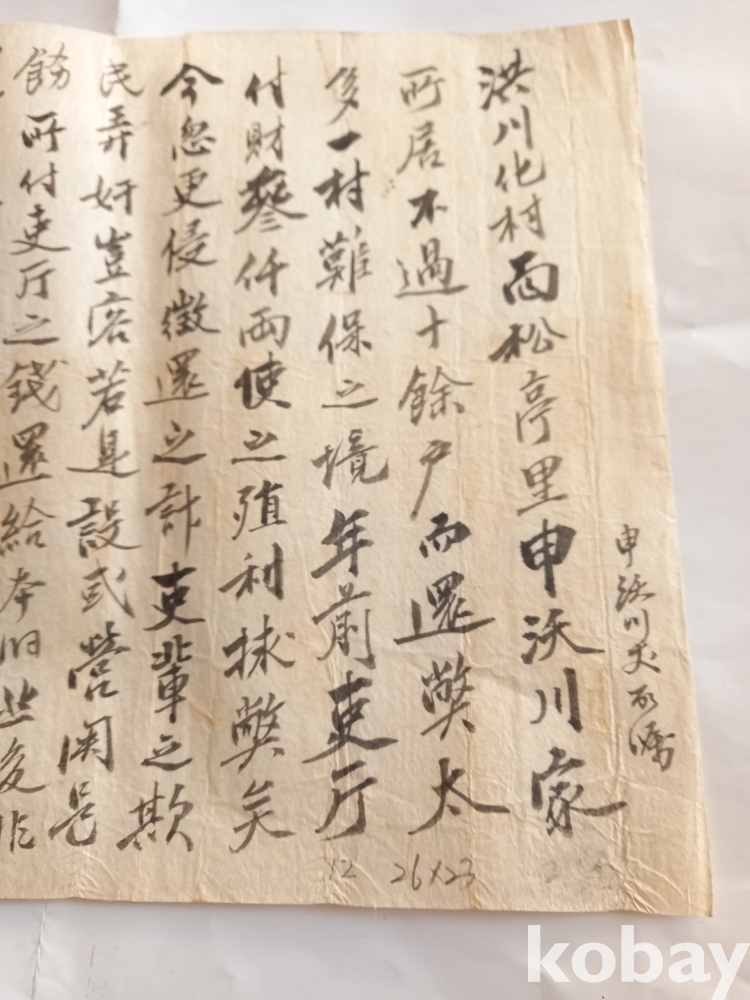 申沃川丈所囑
洪川化村面松亭里申沃川家
所居不過十餘戶而還弊太
多一村難保之境年前吏厅
付財叄仟両使之殖利捄弊矣
今忽更侵徵還之計吏輩之欺
民弄奸豈容若是設或營関
飭所付吏厅之錢還給本
12 26×23
kobay